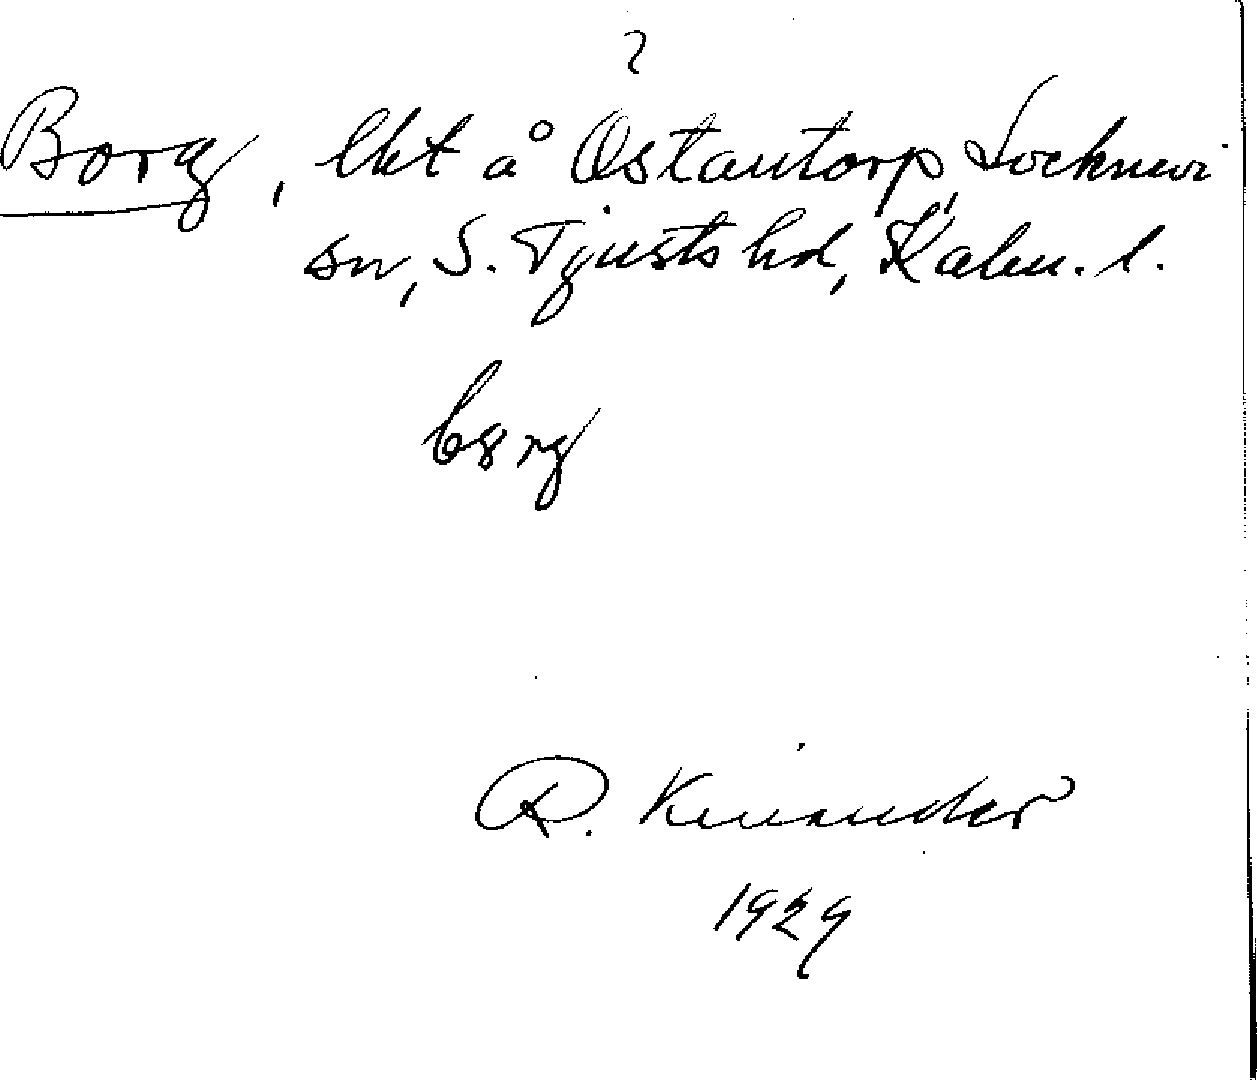 ?
Borg, lht å Östantorp, Locknevi
sn, S. Tjusts hd, Kalm. l.
bɷrg
R. Kinander
1929